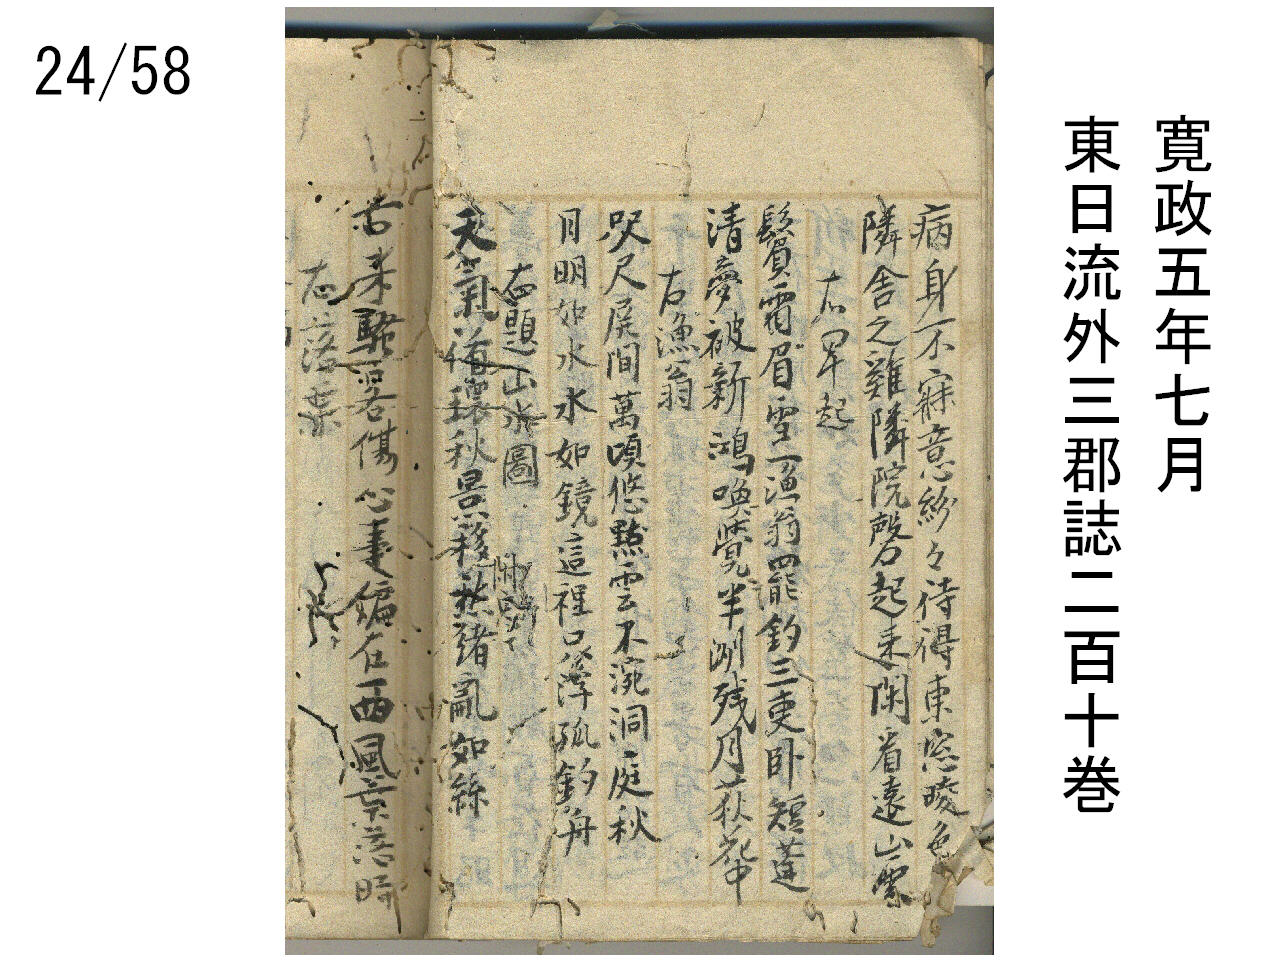 24/58
寛政五年七月
東日流外三郡誌二百十巻
病身不寐意紛々待得東窓暁色
隣舎之雞隣院磬起来閑看遠山雲
右早起
鬢霜眉雪一漁翁罷釣三更臥短蓬
清夢破新鴻喚覚半渕残月荻花中
右漁翁
咫尺屏間萬頃悠黙雲不涴洞庭秋
月明如水水如鏡這裡只簿孤釣舟
右題山水圖
天氣循環秋景移愁緒亂如絲
古来騒客傷心事偏在西風落時
右落葉